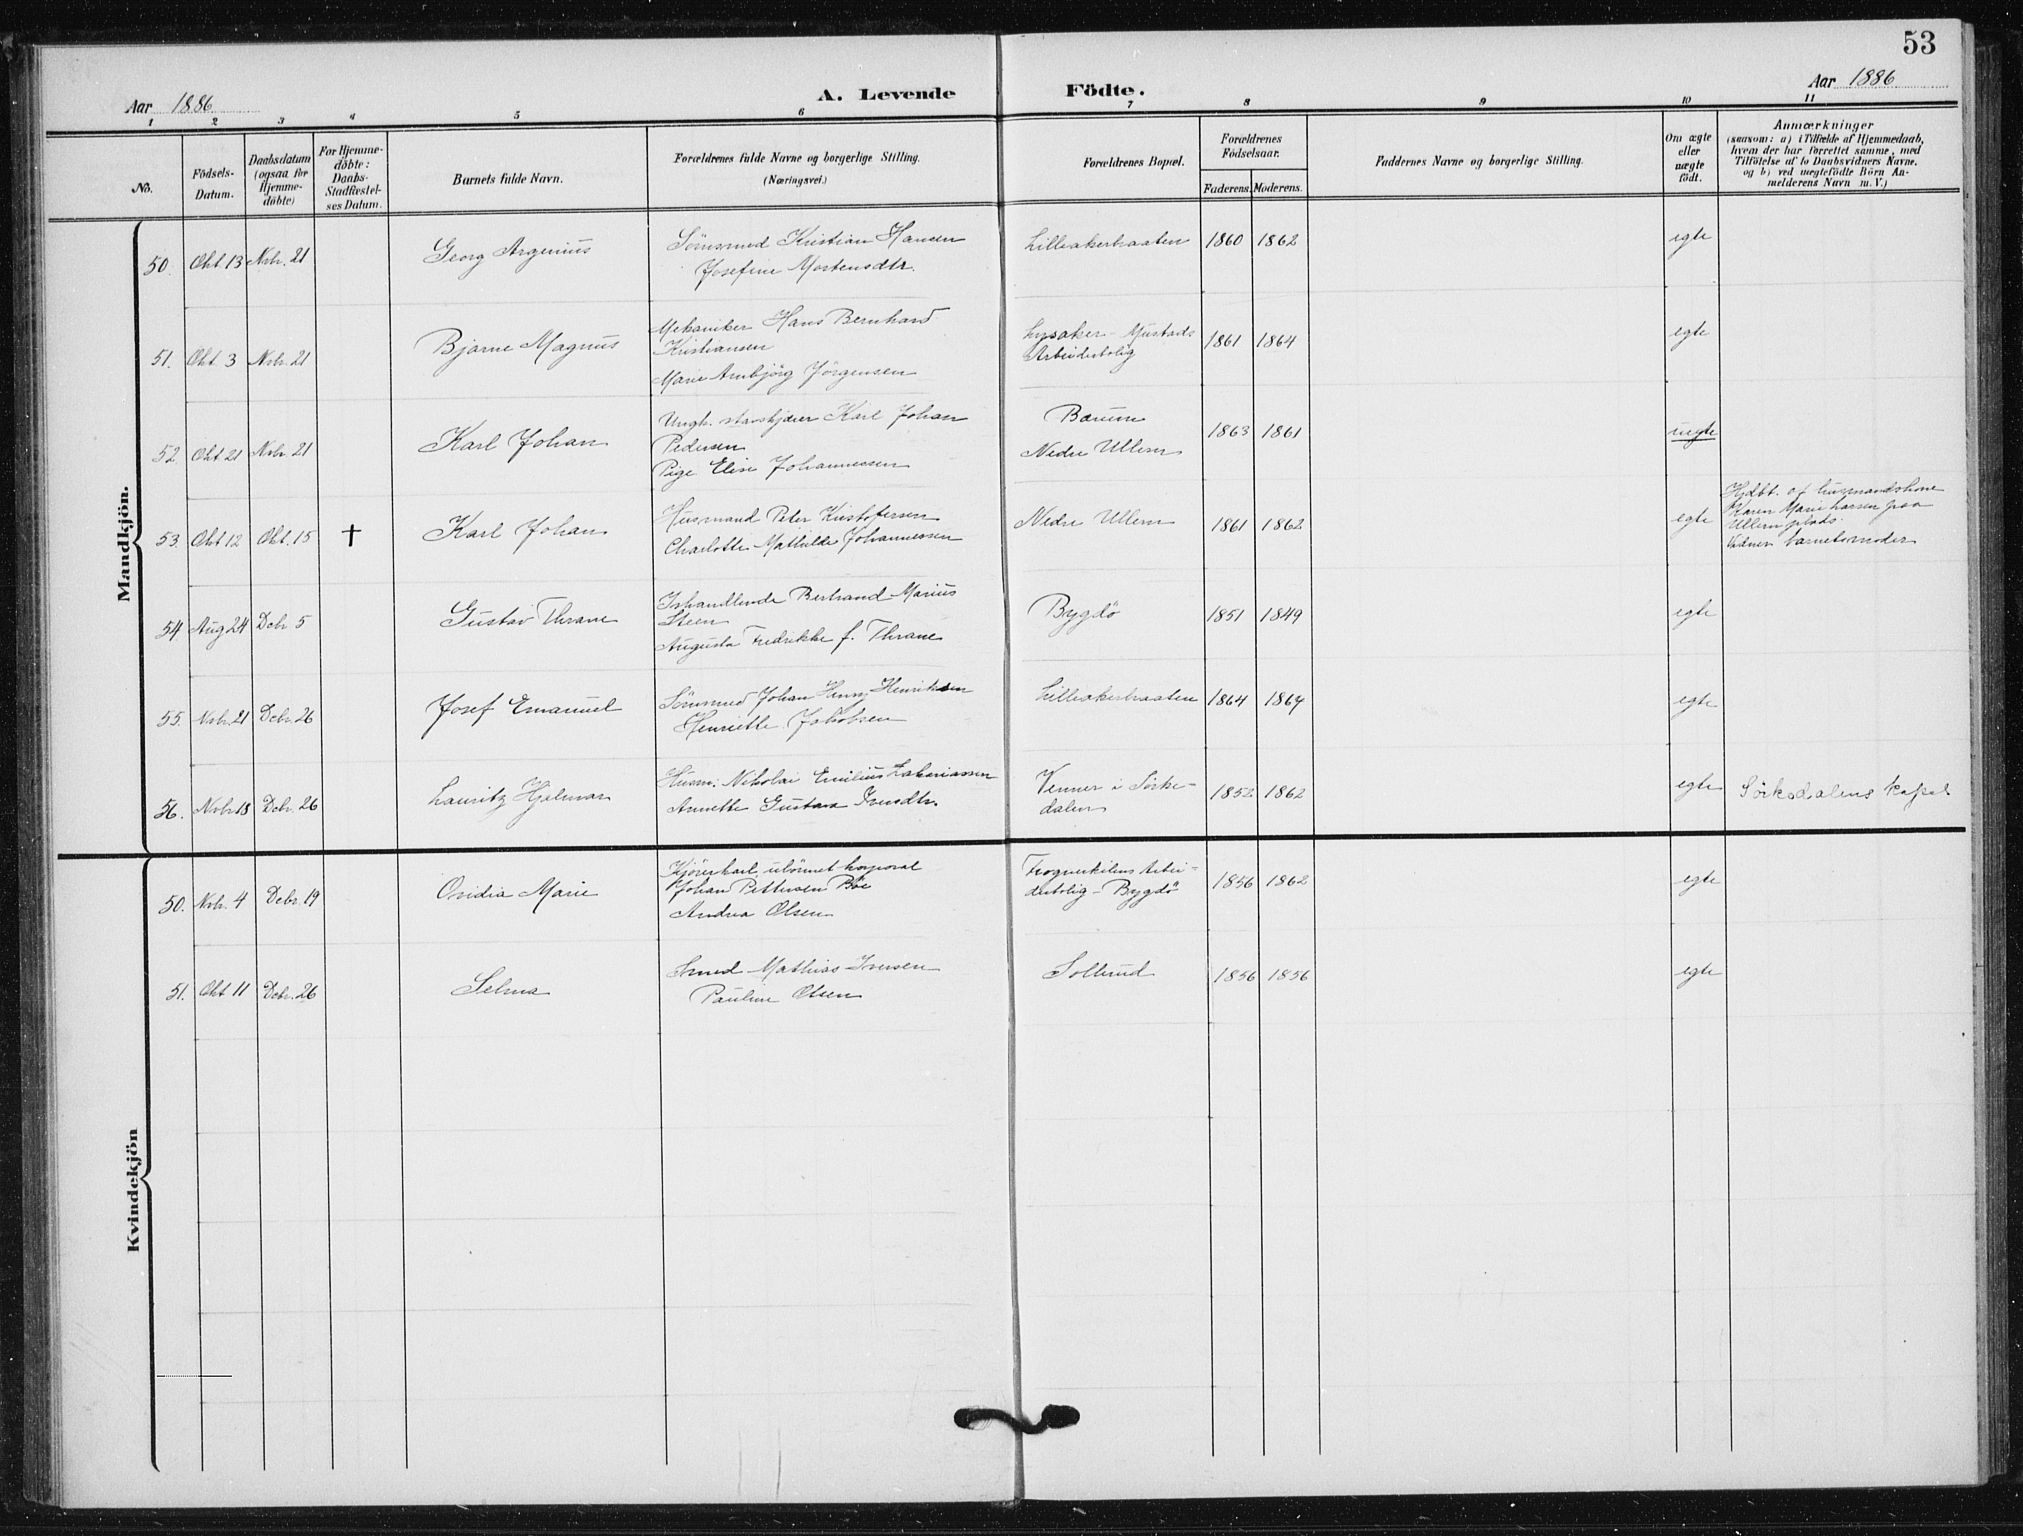 53
Aar 1886
A. Levende Födte.
Aar 1886
1 2 3 4 5 6 7 8 9 10 11
No.
Födsels-
Datum.
Daabsdatum
(ogsaa for
Hjemme-
döbte)
For Hjemme-
döbte:
Daabs-
Stadfæstel-
ses Datum.
Barnets fulde Navn.
Forældrenes fulde Navne og borgerlige Stilling.
(Næringsvei.)
Forældrenes Bopæl.
Forældrenes
Födselsaar.
Faderens. Moderens.
Faddernes Navne og borgerlige Stilling.
Om ægte
eller
uægte
födt.
Anmærkninger
(saasom: a) i Tilfælde af Hjemmedaab,
hvem der har forrettet samme, med
Tilföielse af to Daabsvidners Navne.
og b) ved uægtefödte Börn An-
melderens Navn m. V.)
Mandkjön.
50. Okt 13 Nvbr. 21 Georg Argenius
Sömsmed Kristian Hansen
Josefine Mortensdtr.
Lilleakerbraaten 1860 1862 egte
51. Okt. 3 Nvbr. 21 Bjarne Magnus
Mekaniker Hans Bernhard
Kristiansen
Marie Arnbjörg Jörgensen
Lysaker - Mustads
Arbeiderbolig
1861 1864 egte
52. Okt 21 Nvbr. 21 Karl Johan
Ungk. stavskjærer Karl Johan
Pedersen
Pige Elise Johannessen
Bærum
Nedre Ullern
1863 1861 uegte
53. Okt 12 Okt. 15 † Karl Johan
Husmand Peter Kristofersen
Charlotte Mathilde Johannessen
Nedre Ullern 1861 1862 egte
Hjdbt. af husmandskone
Karen Marie Larsen paa
Ullern plads.
Vidner barnets moder
54 Aug 24 Dcbr 5 Gustav Thrane
Ishandlende Bertrand Marius
Steen
Augusta Fredrikke f. Thrane
Bygdö 1851 1849 egte
55. Nvbr. 21 Dcbr. 26 Josef Emanuel
Sömsmed Johan Henry Henriksen
Henriette Jakobsen
Lilleakerbraaten 1864 1864 egte
56. Nvbr 18 Dcbr. 26 Lauritz Hjalmar
Husm. Nikolai Emilius Zakariassen
Annette Gustava Iversdtr.
Venner i Sörke-
dalen
1852 1862 egte Sörkedalens kapel
Kvindekjön
50. Nvbr. 4 Dcbr. 19 Ovidia Marie
Kjörerkarl, ulönnet korporal
Johan Pettersen Böe
Andrea Olsen
Frognerkilens Arbei-
derbolig - Bygdö
1856 1862 egte
51. Okt 11 Dcbr. 26 Selma
Smed Mathias Iversen
Pauline Olsen
Sollerud 1856 1856 egte